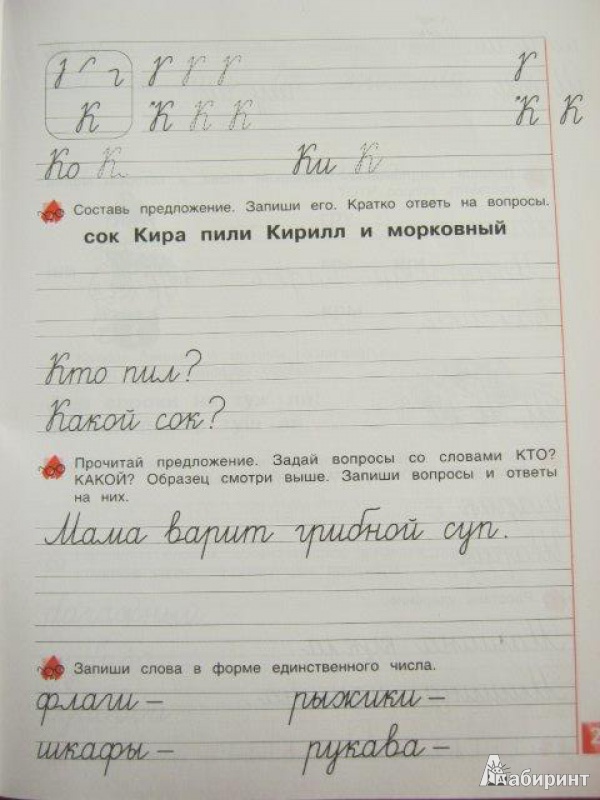 К К К К К К
Ко К Ки К
Составь предложение. Запиши его. Кратко ответь на вопросы.
сок Кира пили Кирилл и морковный
Кто пил?
Какой сок?
Прочитай предложение. Задай вопросы со словами КТО?
КАКОЙ? Образец смотри выше. Запиши вопросы и ответы
на них.
Мама варит грибной суп.
Запиши слова в форме единственного числа.
флаги – рыжики –
шкафы – рукава –
2
Лабиринт